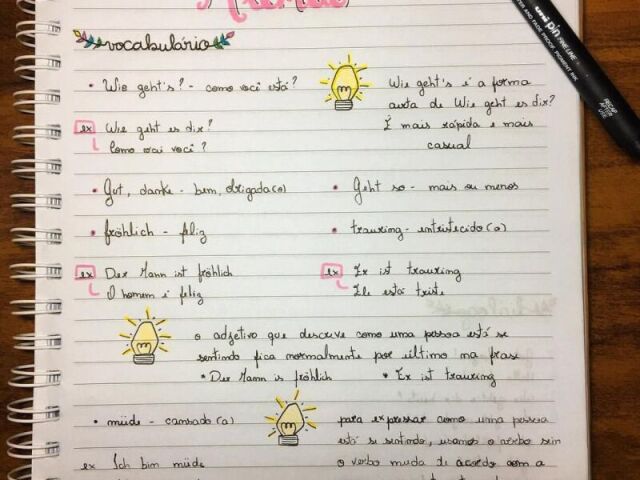 vocabulário
• Wie geht's? - como você está?
Wie geht's é a forma
curta de Wie geht es dir?
É mais rápida e mais
casual
ex Wie geht es dir?
Como vai você?
• Gut, danke - bem, obrigada(o)
• Geht so - mais ou menos
• fröhlich - feliz
• trauring - entristecido(a)
ex Der Mann ist fröhlich
O homem é feliz
ex Er ist trauring
Ele está triste
o adjetivo que descreve como uma pessoa está se
sentindo fica normalmente por último na frase
• Der Mann is fröhlich • Er ist trauring
• müde - cansado(a)
para expressar como uma pessoa
está se sentindo, usamos o verbo sein
ex Ich bin müde
o verbo muda de acordo com a
uni pin FINE LINE